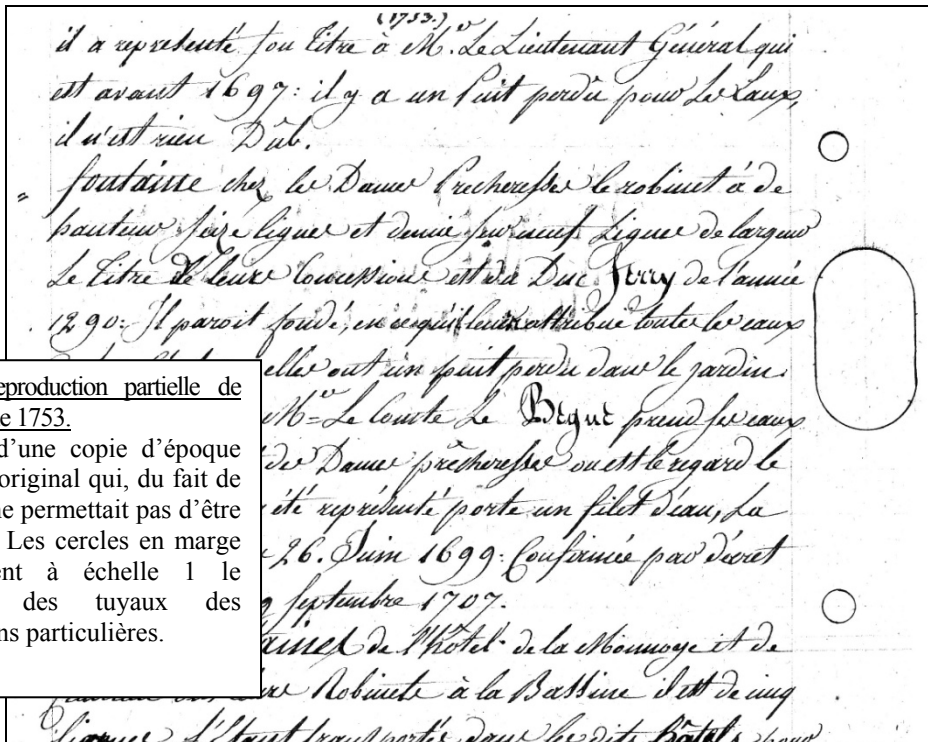 (1753.)
il a representé son titre à Mr. Le Lieutenant Général qui
est avant 1697: il y a un Puit perdu pour les Eaux,
il n'est rien Dub.
" fontaine chez les Dames Precheresses le robinet à de
hauteur seize lignes et demie sur neuf Lignes de largeur
Le titre de leure Concession est du Duc Ferry de l'année
1290: Il paroit fondé, en ce qu'il leur attribue toute les eaux
elles ont un puit perdu dans le jardin.
Mr Le Comte Le Begue prend ses eaux
des Dames prècheresses ou est le regard le
été représenté porte un filet d'eau, La
26. Juin 1699: Confirmée par décret
septembre 1707.
de l'hôtel de la Monnoye et de
Robinets à la Bassine il est de cinq
transportés dans les dits hôtels pour
eproduction partielle de
e 1753.
d'une copie d'époque
original qui, du fait de
ne permettait pas d'être
Les cercles en marge
ent à échelle 1 le
des tuyaux des
ns particulières.